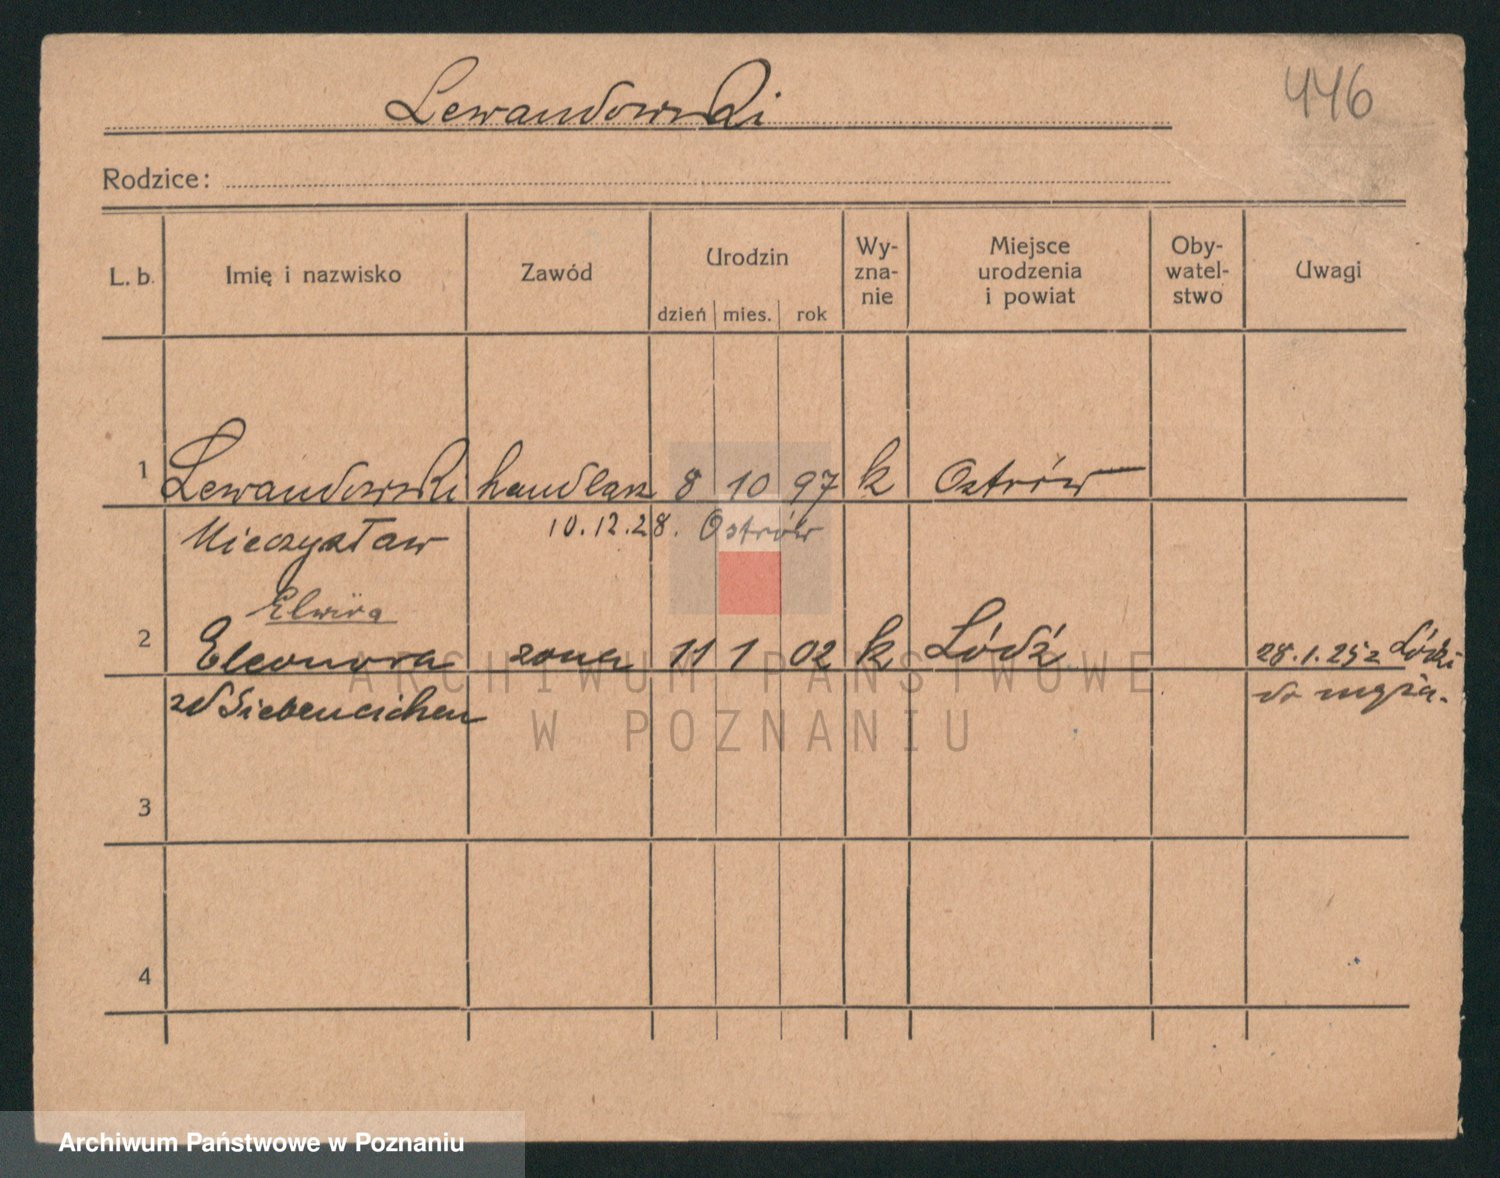 Lewandowski
446
Rodzice:
L. b. Imię i nazwisko Zawód Urodzin Wy-zna-nie Miejsce urodzenia i powiat Oby-watel-stwo Uwagi
dzień mies. rok
1 Lewandowski handlarz 8 10 97 k Ostrów
Mieczysław 10.12.28. Ostrów
Elwira
2 Eleonora żona 11 1 02 k Łódź 28.1.25 z Łódzi
zd Siebeneichen do męża.
3
4
ARCHIWUM PAŃSTWOWE
W POZNANIU
Archiwum Państwowe w Poznaniu